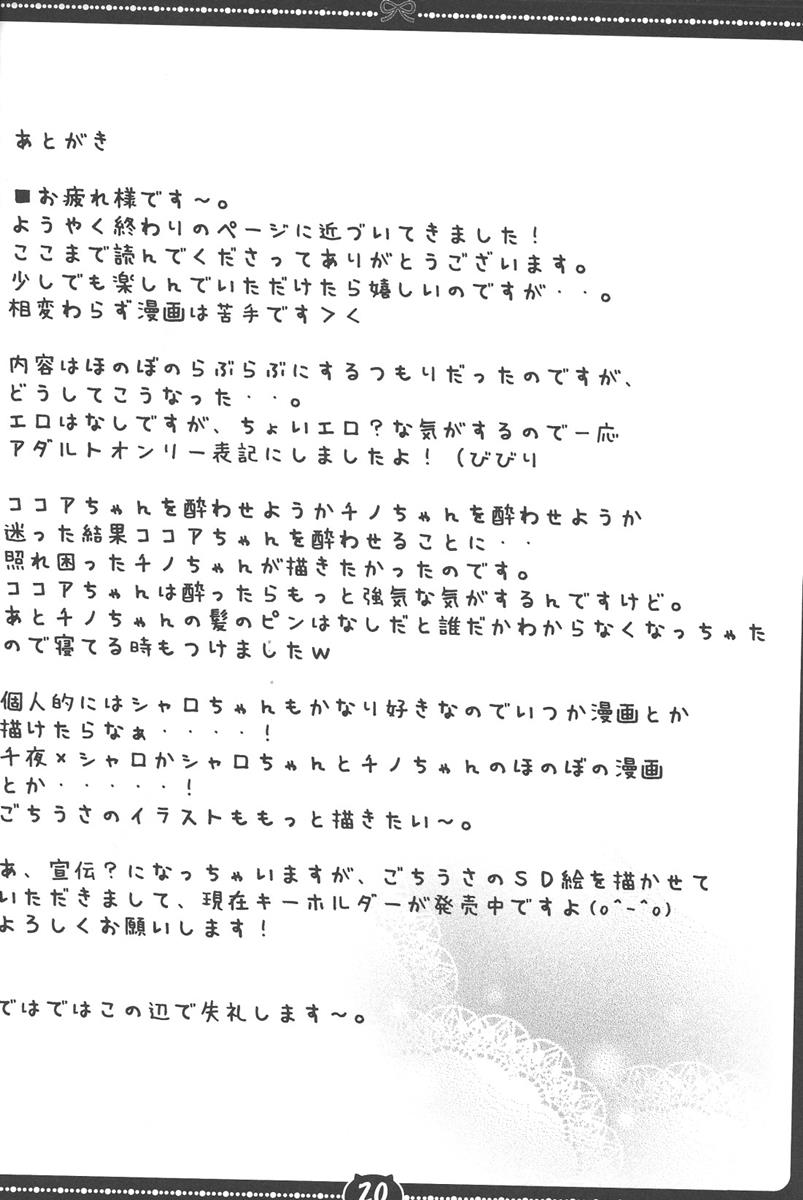 あとがき
■お疲れ様です～。
ようやく終わりのページに近づいてきました！
ここまで読んでくださってありがとうございます。
少しでも楽しんでいただけたら嬉しいのですが・・。
相変わらず漫画は苦手です＞く
内容はほのぼのらぶらぶにするつもりだったのですが、
どうしてこうなった・・。
エロはなしですが、ちょいエロ？な気がするので一応
アダルトオンリー表記にしましたよ！（びびり
ココアちゃんを酔わせようかチノちゃんを酔わせようか
迷った結果ココアちゃんを酔わせることに・・
照れ困ったチノちゃんが描きたかったのです。
ココアちゃんは酔ったらもっと強気な気がするんですけど。
あとチノちゃんの髪のピンはなしだと誰だかわからなくなっちゃた
ので寝てる時もつけましたｗ
個人的にはシャロちゃんもかなり好きなのでいつか漫画とか
描けたらなぁ・・・・！
千夜×シャロかシャロちゃんとチノちゃんのほのぼの漫画
とか・・・・・！
ごちうさのイラストももっと描きたい～。
あ、宣伝？になっちゃいますが、ごちうさのＳＤ絵を描かせて
いただきまして、現在キーホルダーが発売中ですよ(o^-^o)
よろしくお願いします！
ではではこの辺で失礼します～。
20